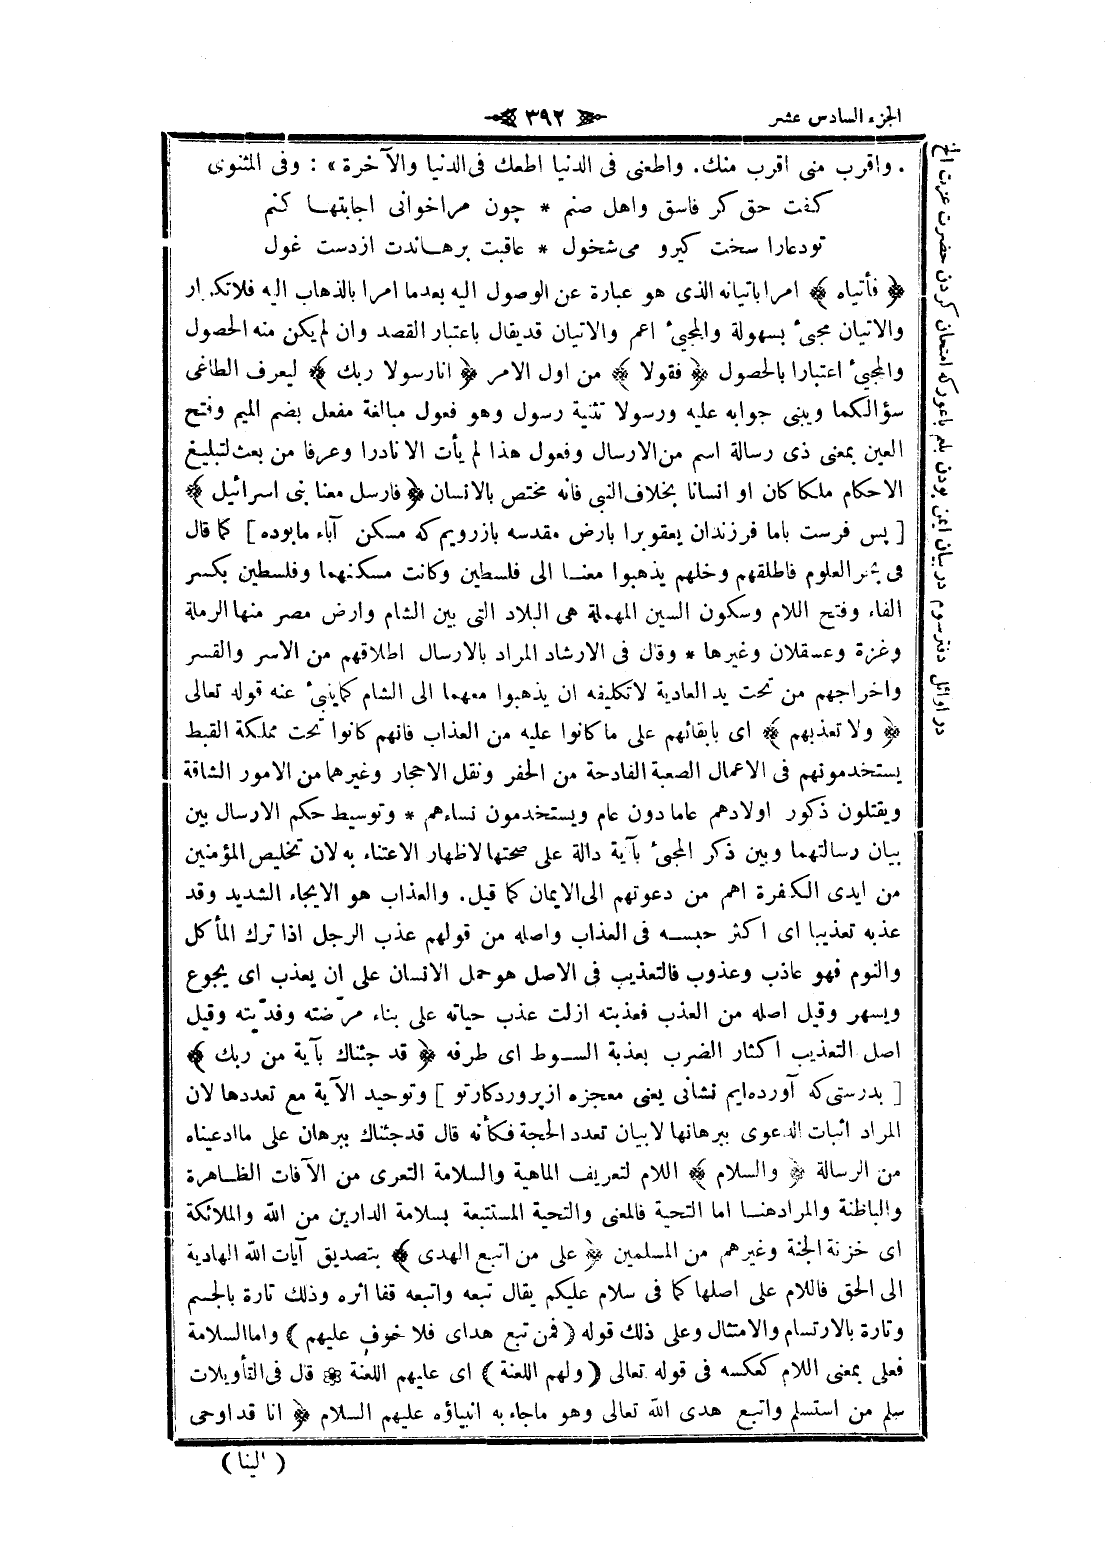 الجزء السادس عشر
٣٩٢
. واقرب منى اقرب منك. واطعنى فى الدنيا اطعك فى الدنيا والآخرة» : وفى المثنوى
كفت حق كر فاسق واهل صنم * چون مراخوانى اجابتها كنم
تودعارا سخت كيرو مى‌شخول * عاقبت برهاندت ازدست غول
﴿ فأتياه ﴾ امرا باتيانه الذى هو عبارة عن الوصول اليه بعدما امرا بالذهاب اليه فلاتكرار
والاتيان مجئ بسهولة والمجيئ اعم والاتيان قديقال باعتبار القصد وان لم يكن منه الحصول
والمجيئ اعتبارا بالحصول ﴿ فقولا ﴾ من اول الامر ﴿ انارسولا ربك ﴾ ليعرف الطاغى
سؤالكما ويبنى جوابه عليه ورسولا تثنية رسول وهو فعول مبالغة مفعل بضم الميم وفتح
العين بمعنى ذى رسالة اسم من الارسال وفعول هذا لم يأت الا نادرا وعرفا من بعث لتبليغ
الاحكام ملكا كان او انسانا بخلاف النبى فانه مختص بالانسان ﴿ فارسل معنا بنى اسرائيل ﴾
[ پس فرست باما فرزندان يعقوبرا بارض مقدسه بازرويم كه مسكن آباء مابوده ] كما قال
فى بحر العلوم فاطلقهم وخلهم يذهبوا معنا الى فلسطين وكانت مسكنهما وفلسطين بكسر
الفاء وفتح اللام وسكون السين المهملة هى البلاد التى بين الشام وارض مصر منها الرملة
وغزة وعسقلان وغيرها * وقال فى الارشاد المراد بالارسال اطلاقهم من الاسر والقسر
واخراجهم من تحت يد العادية لاتكليفه ان يذهبوا معهما الى الشام كماينبئ عنه قوله تعالى
﴿ ولا تعذبهم ﴾ اى بابقائهم على ماكانوا عليه من العذاب فانهم كانوا تحت مملكة القبط
يستخدمونهم فى الاعمال الصعبة الفادحة من الحفر ونقل الاحجار وغيرهما من الامور الشاقة
ويقتلون ذكور اولادهم عامادون عام ويستخدمون نساءهم * وتوسيط حكم الارسال بين
بيان رسالتهما وبين ذكر المجئ بآية دالة على صحتها لاظهار الاعتناء به لان تخليص المؤمنين
من ايدى الكفرة اهم من دعوتهم الى الايمان كما قيل. والعذاب هو الايجاء الشديد وقد
عذبه تعذيبا اى اكثر حبسه فى العذاب واصله من قولهم عذب الرجل اذا ترك المأكل
والنوم فهو عاذب وعذوب فالتعذيب فى الاصل هوحمل الانسان على ان يعذب اى يجوع
ويسهر وقيل اصله من العذب فعذبته ازلت عذب حياته على بناء مرّضته وقذّيته وقيل
اصل التعذيب اكثار الضرب بعذبة السوط اى طرفه ﴿ قد جئناك بآية من ربك ﴾
[ بدرستى‌كه آورده‌ايم نشانى يعنى معجزه از پروردكارتو ] وتوحيد الآية مع تعددها لان
المراد اثبات الدعوى ببرهانها لابيان تعدد الحجة فكأنه قال قدجئناك ببرهان على ماادعيناه
من الرسالة ﴿ والسلام ﴾ اللام لتعريف الماهية والسلامة التعرى من الآفات الظاهرة
والباطنة والمرادهنا اما التحية فالمعنى والتحية المستتبعة بسلامة الدارين من الله والملائكة
اى خزنة الجنة وغيرهم من المسلمين ﴿ على من اتبع الهدى ﴾ بتصديق آيات الله الهادية
الى الحق فاللام على اصلها كما فى سلام عليكم يقال تبعه واتبعه قفا اثره وذلك تارة بالجسم
وتارة بالارتسام والامتثال وعلى ذلك قوله (فمن تبع هداى فلا خوف عليهم) واما السلامة
فعلى بمعنى اللام كعكسه فى قوله تعالى (ولهم اللعنة) اى عليهم اللعنة ❁ قال فى التأويلات
سلم من استسلم واتبع هدى الله تعالى وهو ماجاء به انبياؤه عليهم السلام ﴿ انا قد اوحى
( الينا )
در اوائل دفترسوم در بيان ايمن بودن بلعم باعور كه امتحان كردن حضرت عزت الخ